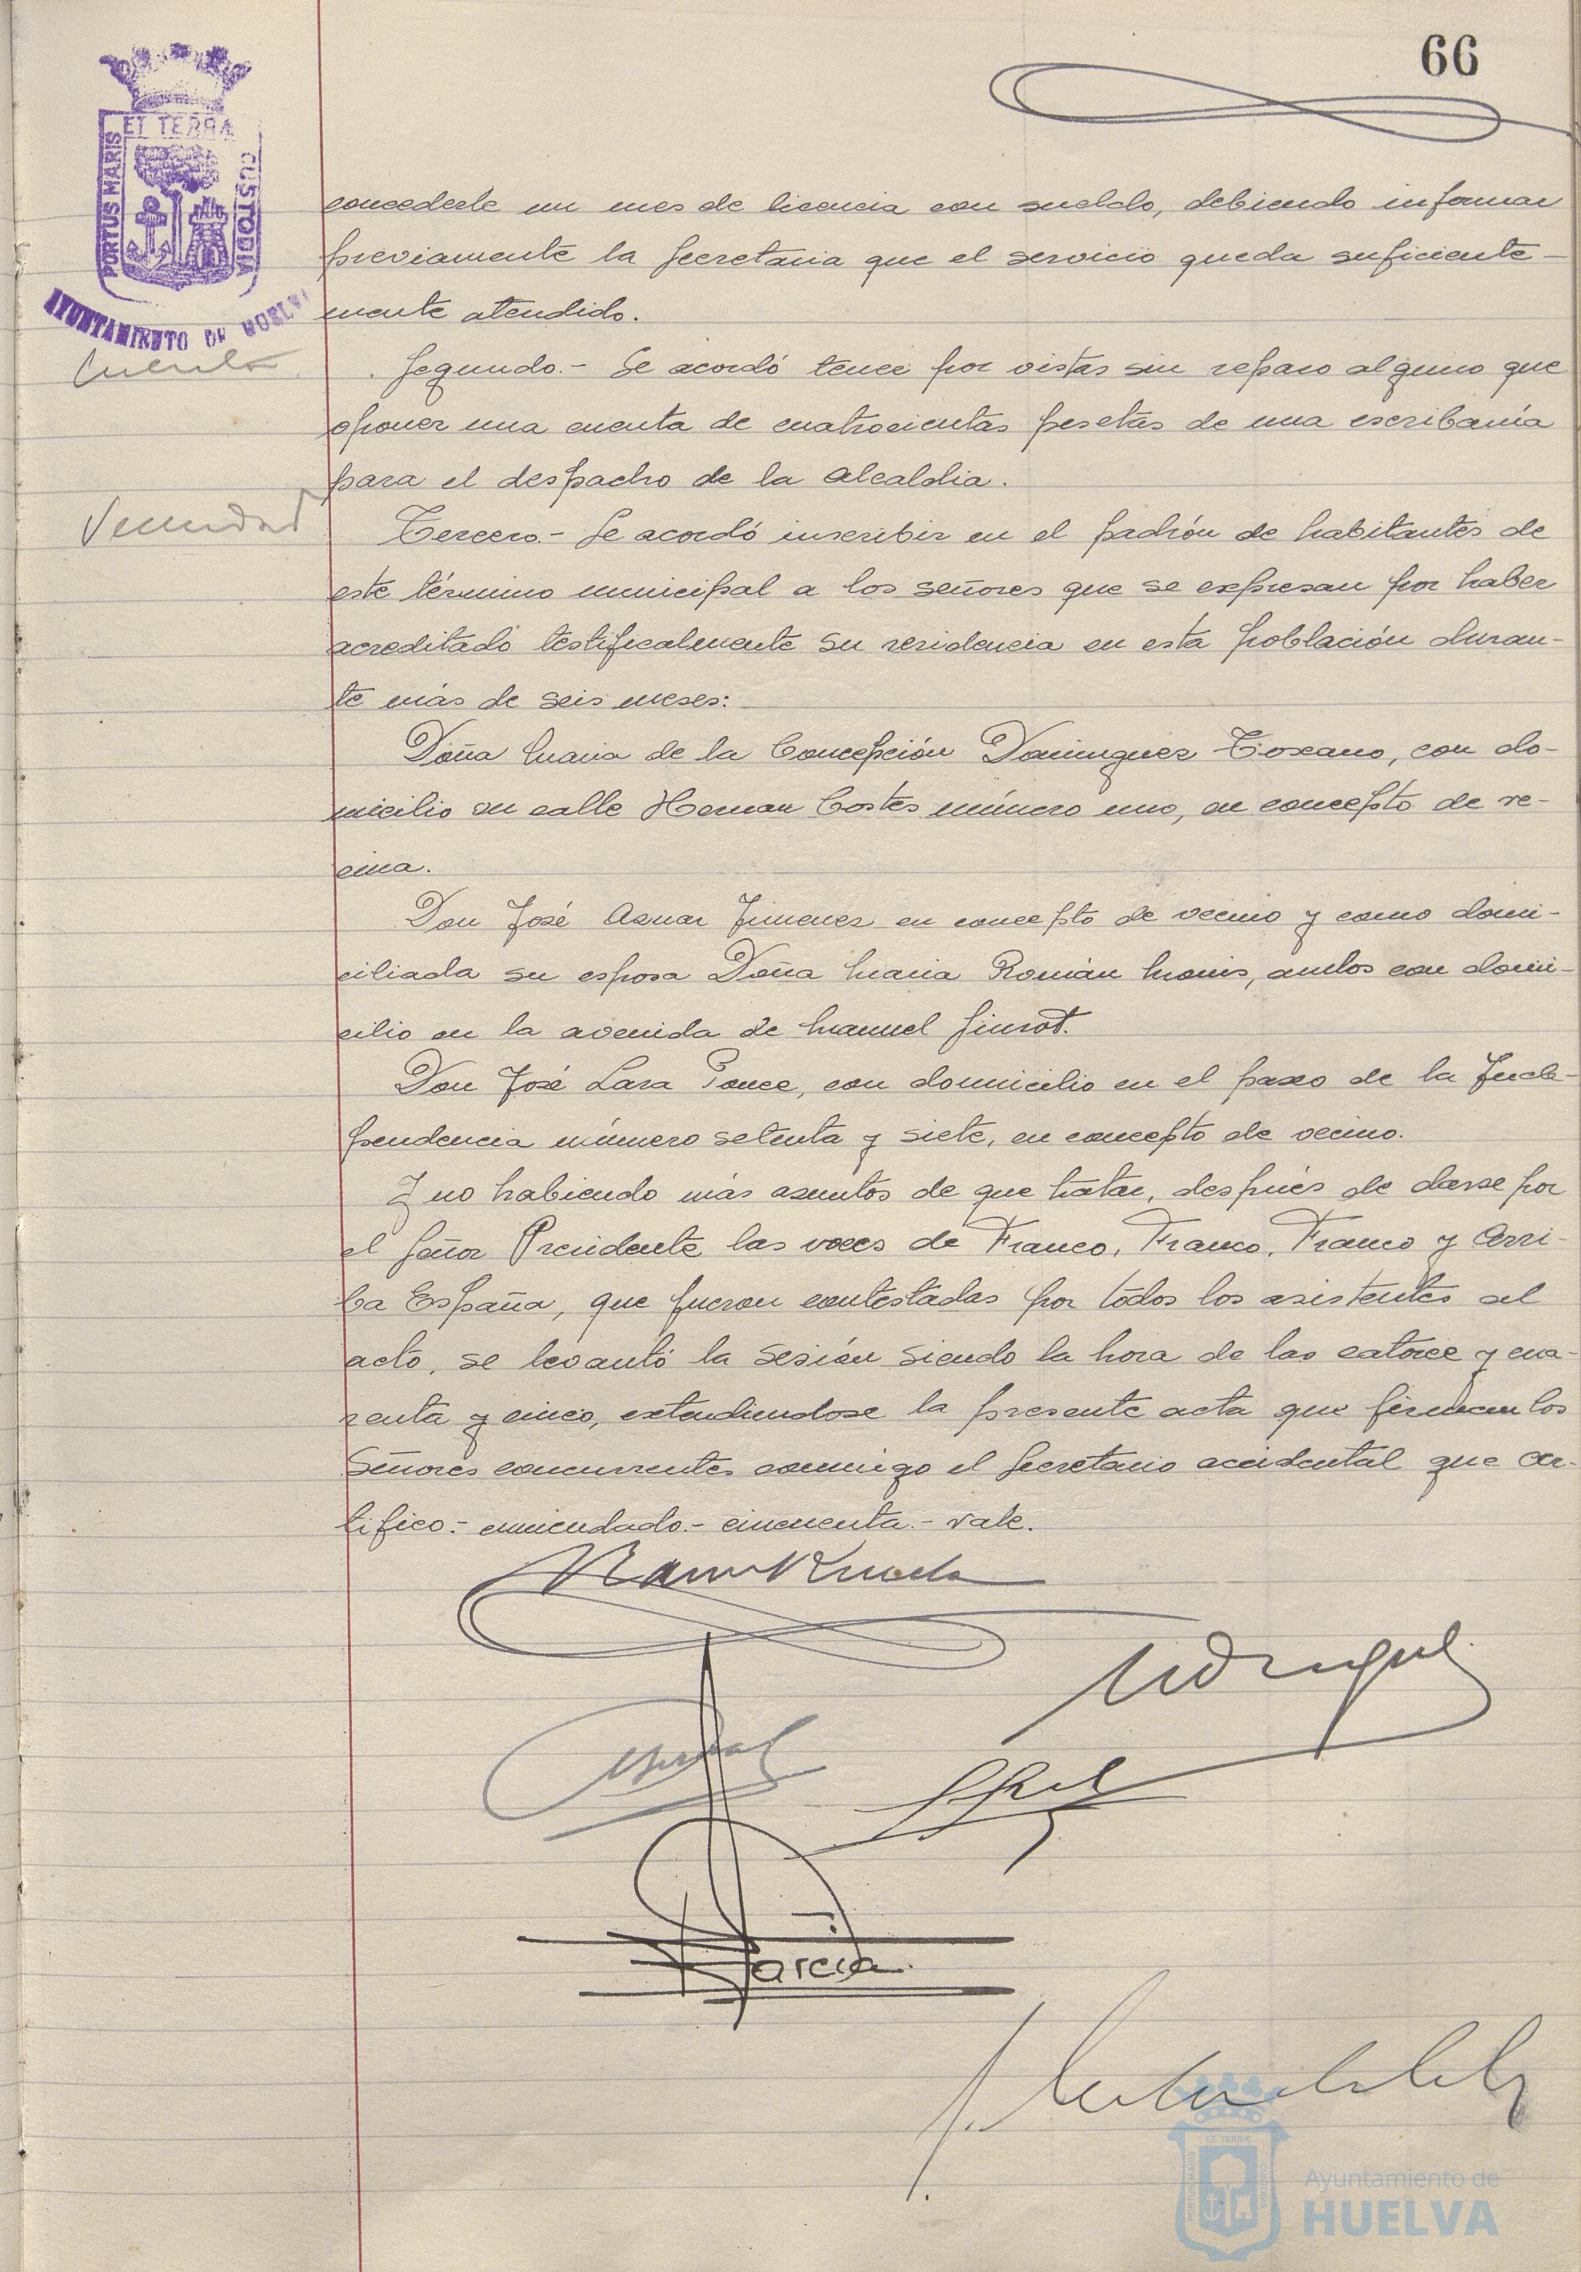 66
PORTUS MARIS ET TERRÆ CUSTODIA
AYUNTAMIENTO DE HUELVA
concederle un mes de licencia con sueldo, debiendo informar
previamente la Secretaria que el servicio queda suficiente-
mente atendido.
Cuenta
Segundo.- Se acordó tener por vistas sin reparo alguno que
oponer una cuenta de cuatrocientas pesetas de una escribanía
para el despacho de la Alcaldia.
Vecindad
Tercero.- Se acordó inscribir en el padrón de habitantes de
este término municipal a los señores que se expresan por haber
acreditado testificalmente su residencia en esta población duran-
te más de seis meses:
Doña Maria de la Concepción Dominguez Toscano, con do-
micilio en calle Hernan Cortes número uno, en concepto de ve-
cina.
Don José Aznar Jimenez en concepto de vecino y como domi-
ciliada su esposa Doña Maria Román, ambos con domi-
cilio en la avenida de Manuel Siurot.
Don José Lara Ponce, con domicilio en el paseo de la Inde-
pendencia número setenta y siete, en concepto de vecino.
Y no habiendo más asuntos de que tratar, después de darse por
el Señor Presidente las voces de Franco, Franco, Franco y Arri-
ba España, que fueron contestadas por todos los asistentes al
acto, se levantó la sesión siendo la hora de las catorce y cua-
renta y cinco, extendiendose la presente acta que firman los
Señores concurrentes conmigo el Secretario accidental que cer-
tifico.- enmendado.- cincuenta.- vale.
Garcia
Ayuntamiento de
HUELVA